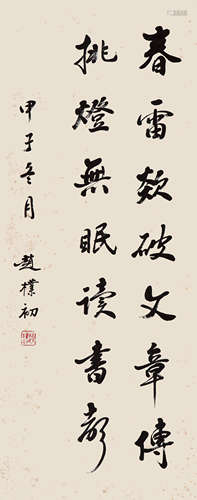 春雷欲破文章傳
挑燈無眠读書聲
甲子冬月
趙樸初